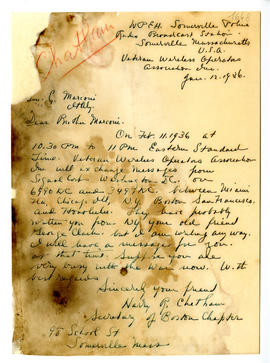 Chatham
WPEH Somerville Police
Radio Broadcast Station
Somerville Massachusetts
U.S.A.
Veteran Wireless Operators
Association Inc.
Jan. 12, 1936.
Sen. G. Marconi
Italy.
Dear Brother Marconi.
On Feb. 11, 1936 at
10.30 PM to 11 PM Eastern Standard
Time. Veteran Wireless Operators Association
Inc will exchange messages from
Signal Corps Washington DC. on
6990 KC and 3497 KC. between Miami
Fla, Chicago Ill, NY. Boston San Francisco,
and Honolulu. They have probably
written you from NY your old friend
George Clark. but I am writing any way.
I will have a message for you.
at that time. Suppose you are
very busy with the war now. With
best regards
Sincerely your friend
Harry R. Chetham
Secretary of Boston Chapter
90 School St
Somerville Mass